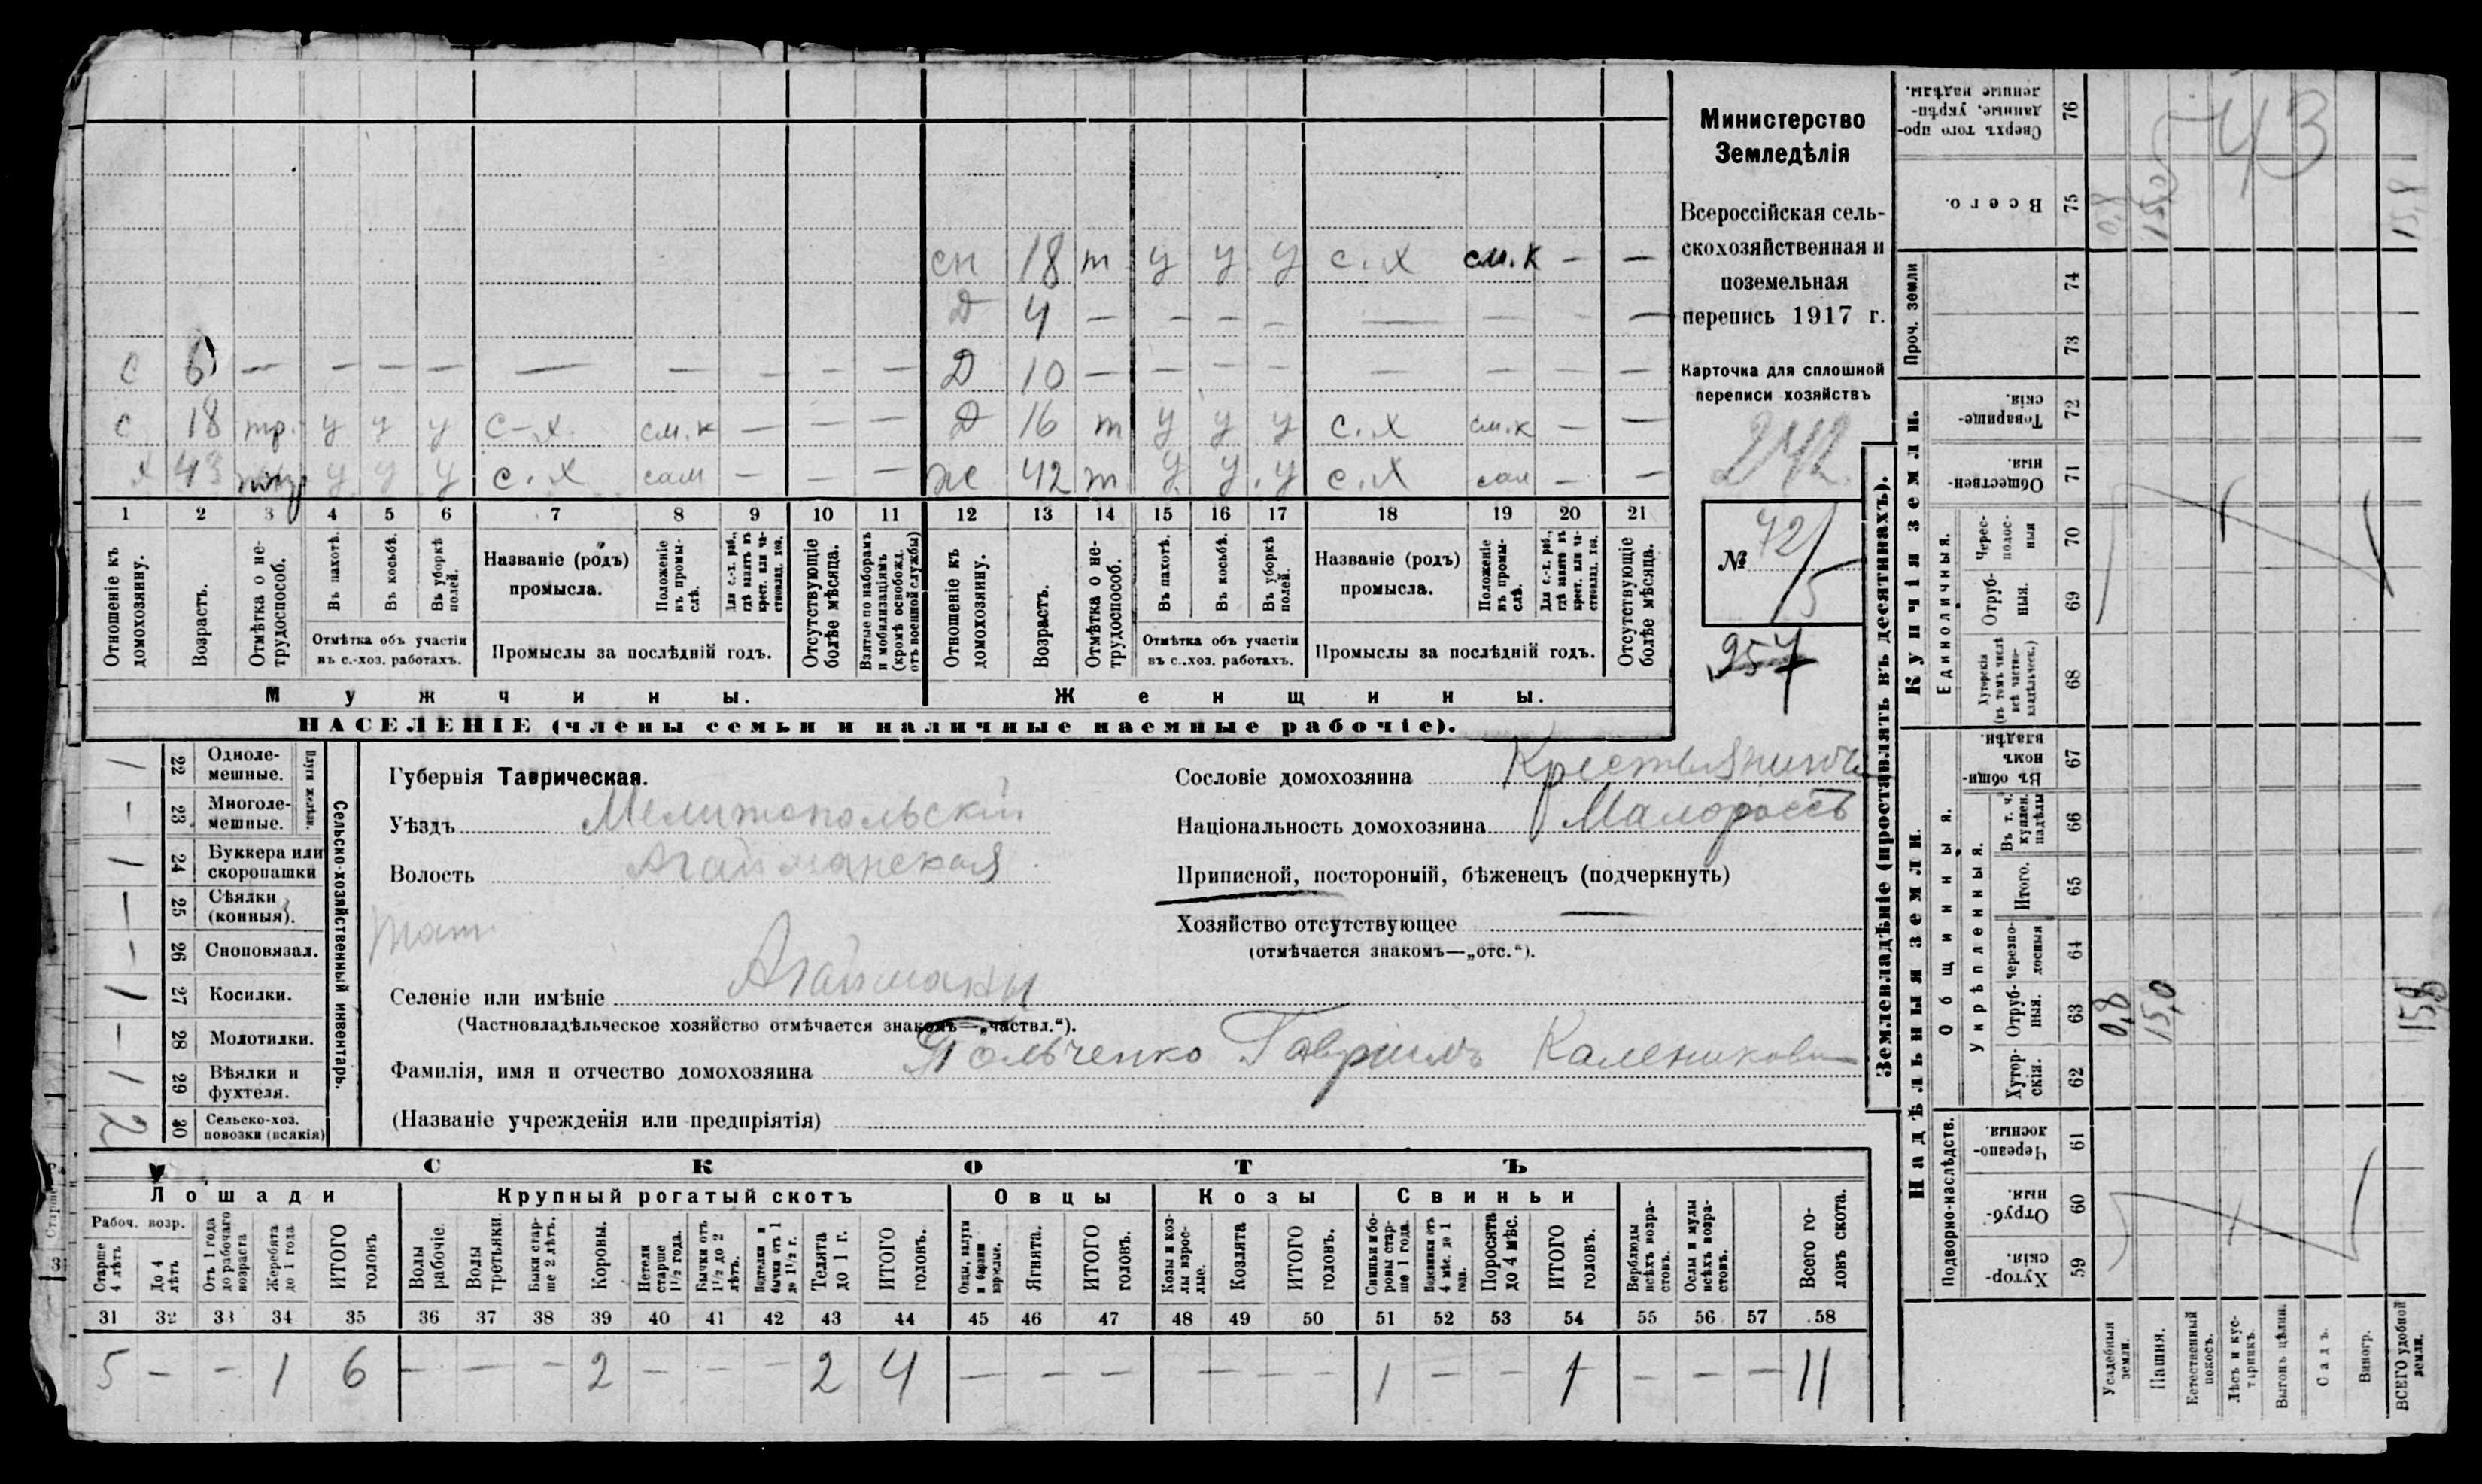 сн 18 т у у у с.х см.к — —
Д 4 — — — — — — — —
с 6 — — — — — — — — — Д 10 — — — — — — — —
с 18 тр. у у у с-х. см.к — — — Д 16 т у у у с.х см.к — —
х 43 у у у с.х сам — — — ж 42 т у у у с.х сам — —
1 2 3 4 5 6 7 8 9 10 11 12 13 14 15 16 17 18 19 20 21
Отношеніе къ домохозяину.
Возрастъ.
Отмѣтка о не-трудоспособ.
Въ пахотѣ.
Въ косьбѣ.
Въ уборкѣ полей.
Отмѣтка объ участіи
въ с.-хоз. работахъ.
Названіе (родъ)
промысла.
Положеніе въ промы-слѣ.
Для с.-х. раб., гдѣ занятъ въ крест. или ча-стновлад. хоз.
Промыслы за послѣдній годъ.
Отсутствующіе болѣе мѣсяца.
Взятые по наборамъ и мобилизаціямъ (кромѣ освобожд. отъ военной службы)
Отношеніе къ домохозяину.
Возрастъ.
Отмѣтка о не-трудоспособ.
Въ пахотѣ.
Въ косьбѣ.
Въ уборкѣ полей.
Отмѣтка объ участіи
въ с..хоз. работахъ.
Названіе (родъ)
промысла.
Положеніе въ промы-слѣ.
Для с.-х. раб., гдѣ занятъ въ крест. или ча-стновлад. хоз.
Промыслы за послѣдній годъ.
Отсутствующіе болѣе мѣсяца.
Мужчины.
Женщины.
НАСЕЛЕНІЕ (члены семьи и наличные наемные рабочіе).
Министерство
Земледѣлія
Всероссійская сель-
скохозяйственная и
поземельная
перепись 1917 г.
Карточка для сплошной
переписи хозяйствъ
242
№ 42/5
257
Сельско-хозяйственный инвентарь.
Плуги желѣзн.
1 22 Одноле-мешные.
— 23 Многоле-мешные.
1 24 Буккера или скоропашки
— 25 Сѣялки (конныя).
— 26 Сноповязал.
1 27 Косилки.
— 28 Молотилки.
1 29 Вѣялки и фухтеля.
2 30 Сельско-хоз. повозки (всякія)
Губернія Таврическая.
Уѣздъ Мелитопольскій
Волость Агайманская
Селеніе или имѣніе Агайманы
(Частновладѣльческое хозяйство отмѣчается знакомъ—„частвл.“).
Фамилія, имя и отчество домохозяина Гольченко Гавриилъ Калениковъ
(Названіе учрежденія или предпріятія)
Сословіе домохозяина Крестьянинъ
Національность домохозяина Малороссъ
Приписной, посторонній, бѣженецъ (подчеркнуть)
Хозяйство отсутствующее —
(отмѣчается знакомъ—„отс.“).
СКОТЪ
Лошади
Крупный рогатый скотъ
Овцы
Козы
Свиньи
Рабоч. возр.
Старше 4 лѣтъ
До 4 лѣтъ
Отъ 1 года до рабочаго возраста
Жеребята до 1 года
ИТОГО головъ
Волы рабочіе.
Волы третьяки.
Быки стар-ше 2 лѣтъ.
Коровы.
Нетели старше 1½ года.
Бычки отъ 1½ до 2 лѣтъ.
Подтелки и бычки отъ 1 до 1½ г.
Телята до 1 г.
ИТОГО головъ.
Овцы, валухи и бараны взрослые.
Ягнята.
ИТОГО головъ.
Козы и коз-лы взрос-лые.
Козлята
ИТОГО головъ.
Свиньи и бо-ровы стар-ше 1 года.
Подсвинки отъ 4 мѣс. до 1 года.
Поросята до 4 мѣс.
ИТОГО головъ.
Верблюды всѣхъ возра-стовъ.
Ослы и мулы всѣхъ возра-стовъ.
Всего го-ловъ скота.
31 32 33 34 35 36 37 38 39 40 41 42 43 44 45 46 47 48 49 50 51 52 53 54 55 56 57 58
5 — — 1 6 — — — 2 — — — 2 4 — — — — — — 1 — — 1 — — — 11
Землевладѣніе (проставлять въ десятинахъ).
Купчія земли.
Надѣльныя земли.
Сверхъ того про-данные, укрѣп-ленные надѣлы. 76
Всего. 75
Проч. земли 74 73
Товарище-скія. 72
Обществен-ныя. 71
Единоличныя.
Черес-полос-ныя 70
Отруб-ныя. 69
Хуторскія (въ томъ числѣ всѣ частно-владѣльческ.) 68
Общинныя.
Въ общин-номъ владѣн. 67
Укрѣпленныя.
Въ т. ч. куплен. надѣлы 66
Итого. 65
Черезпо-лосныя 64
Отруб-ныя. 63
Хутор-скія. 62
Подворно-наслѣдств.
Черезпо-лосныя. 61
Отруб-ныя. 60
Хутор-скія. 59
Усадебныя земли.
Пашня.
Естественный покосъ.
Лѣсъ и кус-тарникъ.
Выгонъ цѣлин.
Садъ.
Виногр.
ВСЕГО удобной земли.
0,8 15,0 15,8
0,8 15,0 15,8
43